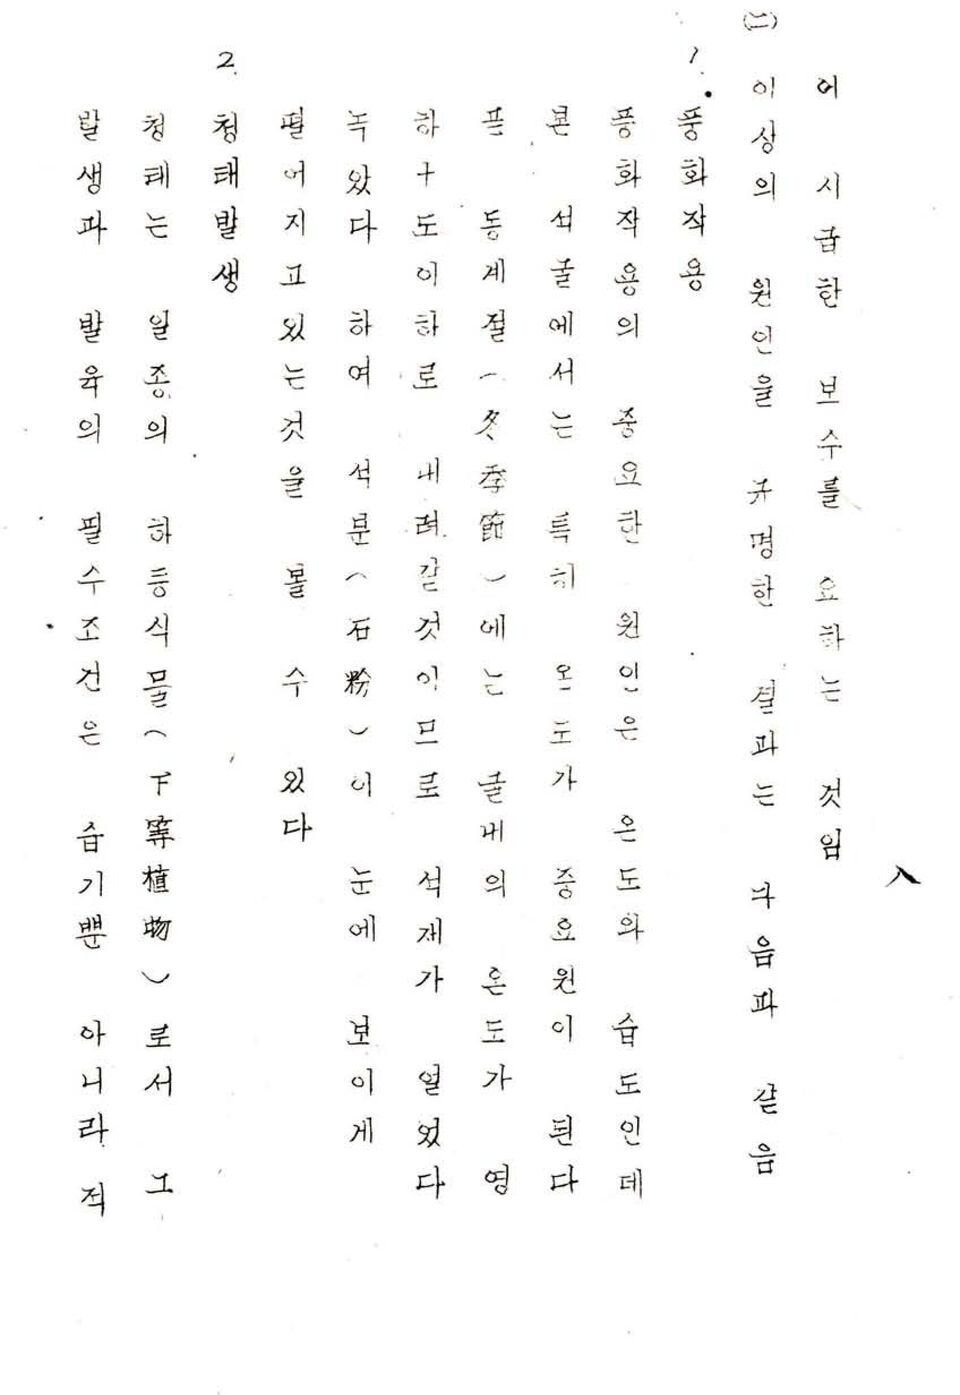 八
어 시급한 보수를 요하는 것임
(二) 이상의 원인을 규명한 결과는 다음과 같음
1. 풍화작용
풍화작용의 중요한 원인은 온도와 습도인데
본 석굴에서는 특히 온도가 중요원이 된다
픈 동계절(冬季節)에는 굴내의 온도가 영
하十도이하로 내려갈것이므로 석재가 얼었다
녹았다 하여 석분(石粉)이 눈에 보이게
떨어지고 있는것을 볼 수 있다
2. 청태발생
청태는 일종의 하등식물(下等植物)로서 그
발생과 발육의 필수조건은 습기뿐 아니라 적